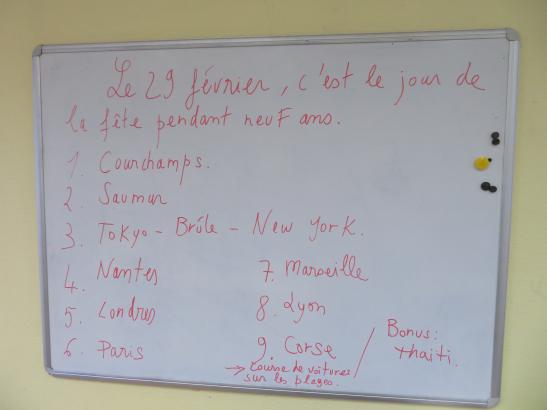 Le 29 février, c'est le jour de
la fête pendant neuf ans.
1. Courchamps.
2. Saumur
3. Tokyo - Brûle - New York.
4. Nantes
5. Londres
6. Paris
7. Marseille
8. Lyon
9. Corse
→ Course de voitures
sur les plages.
Bonus:
thaiti.